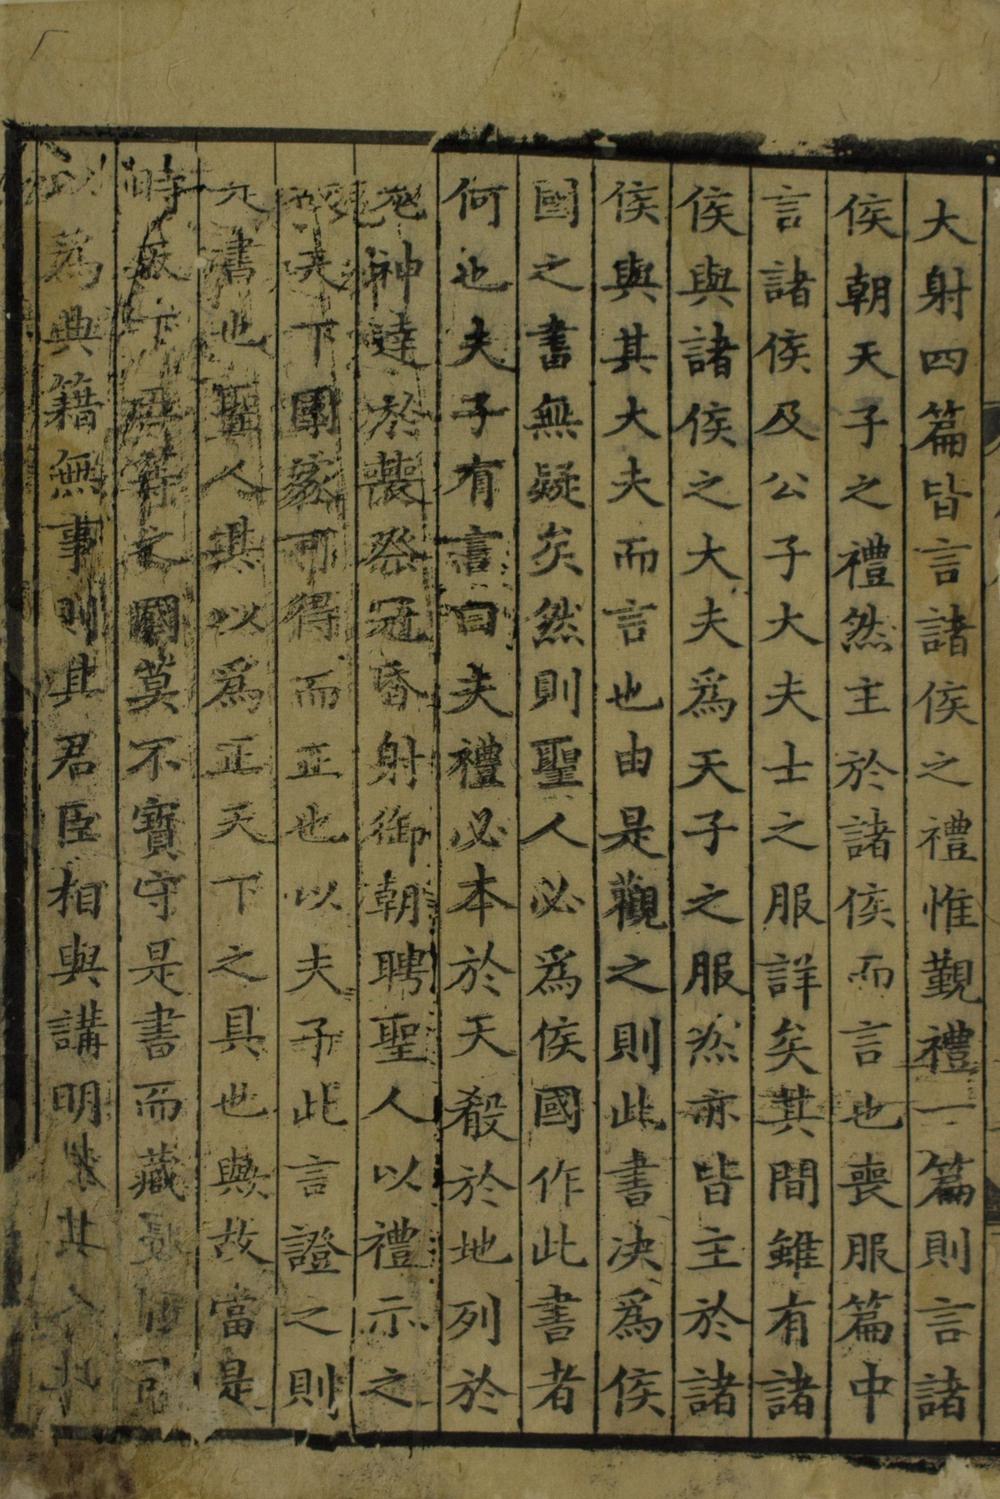 大射四篇皆言諸侯之禮惟覲禮一篇則言諸
侯朝天子之禮然主於諸侯而言也喪服篇中
言諸侯及公子大夫士之服詳矣其間雖有諸
侯與諸侯之大夫爲天子之服然亦皆主於諸
侯與其大夫而言也由是觀之則此書决爲侯
國之書無疑矣然則聖人必爲侯國作此書者
何也夫子有言曰夫禮必本於天殽於地列於
神達於喪祭冠昏射御朝聘聖人以禮示之
天下國家可得而正也以夫子此言證之則
書也聖人其以爲正天下之具也與故當是
時之國莫不寶守是書而藏
以爲典籍無事則其君臣相與講明